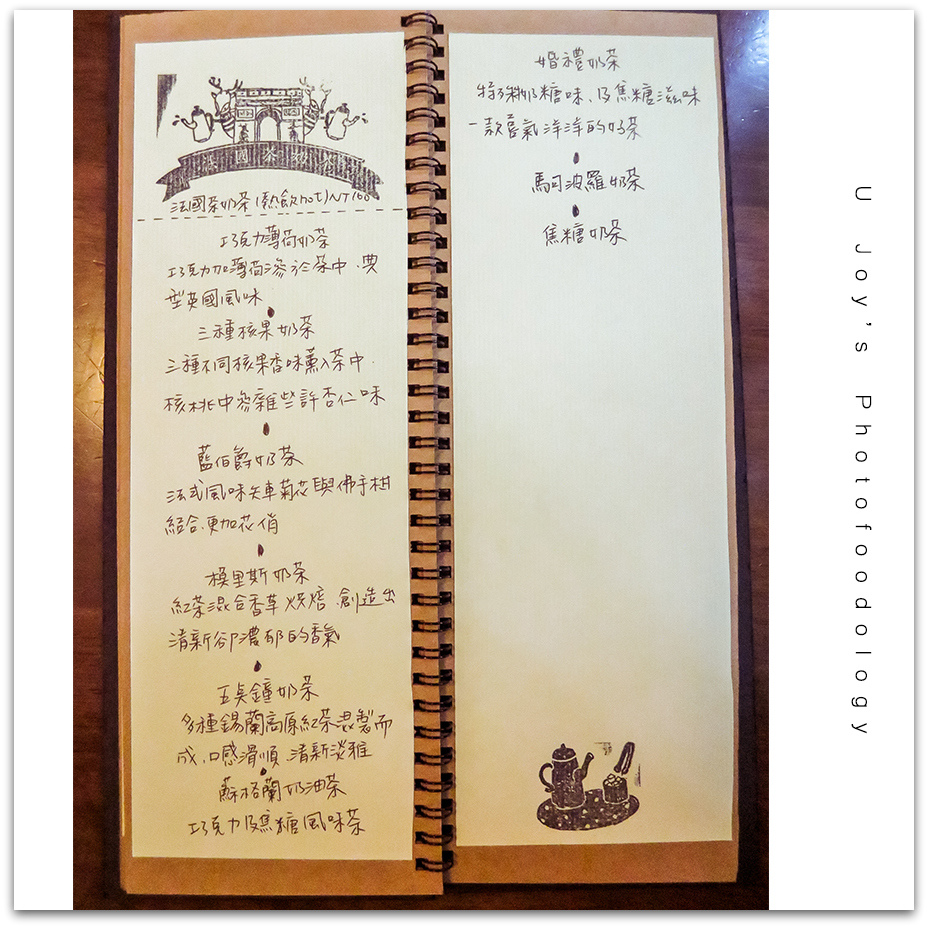 法國茶奶茶
法國茶奶茶(熱飲hot)NT160
巧克力薄荷奶茶
巧克力加薄荷滲於茶中.典
型英國風味
三種核果奶茶
三種不同核果香味薰入茶中.
核桃中參雜些許杏仁味
藍伯爵奶茶
法式風味矢車菊花與佛手柑
結合.更加花俏
模里斯奶茶
紅茶混合香草烘焙.創造出
清新卻濃郁的香氣
五點鐘奶茶
多種錫蘭高原紅茶混製而
成.口感滑順.清新淡雅
蘇格蘭奶油茶
巧克力及焦糖風味茶
婚禮奶茶
特殊奶糖味、及焦糖滋味
一款喜氣洋洋的奶茶
馬可波羅奶茶
焦糖奶茶
U Joy's Photofoodology